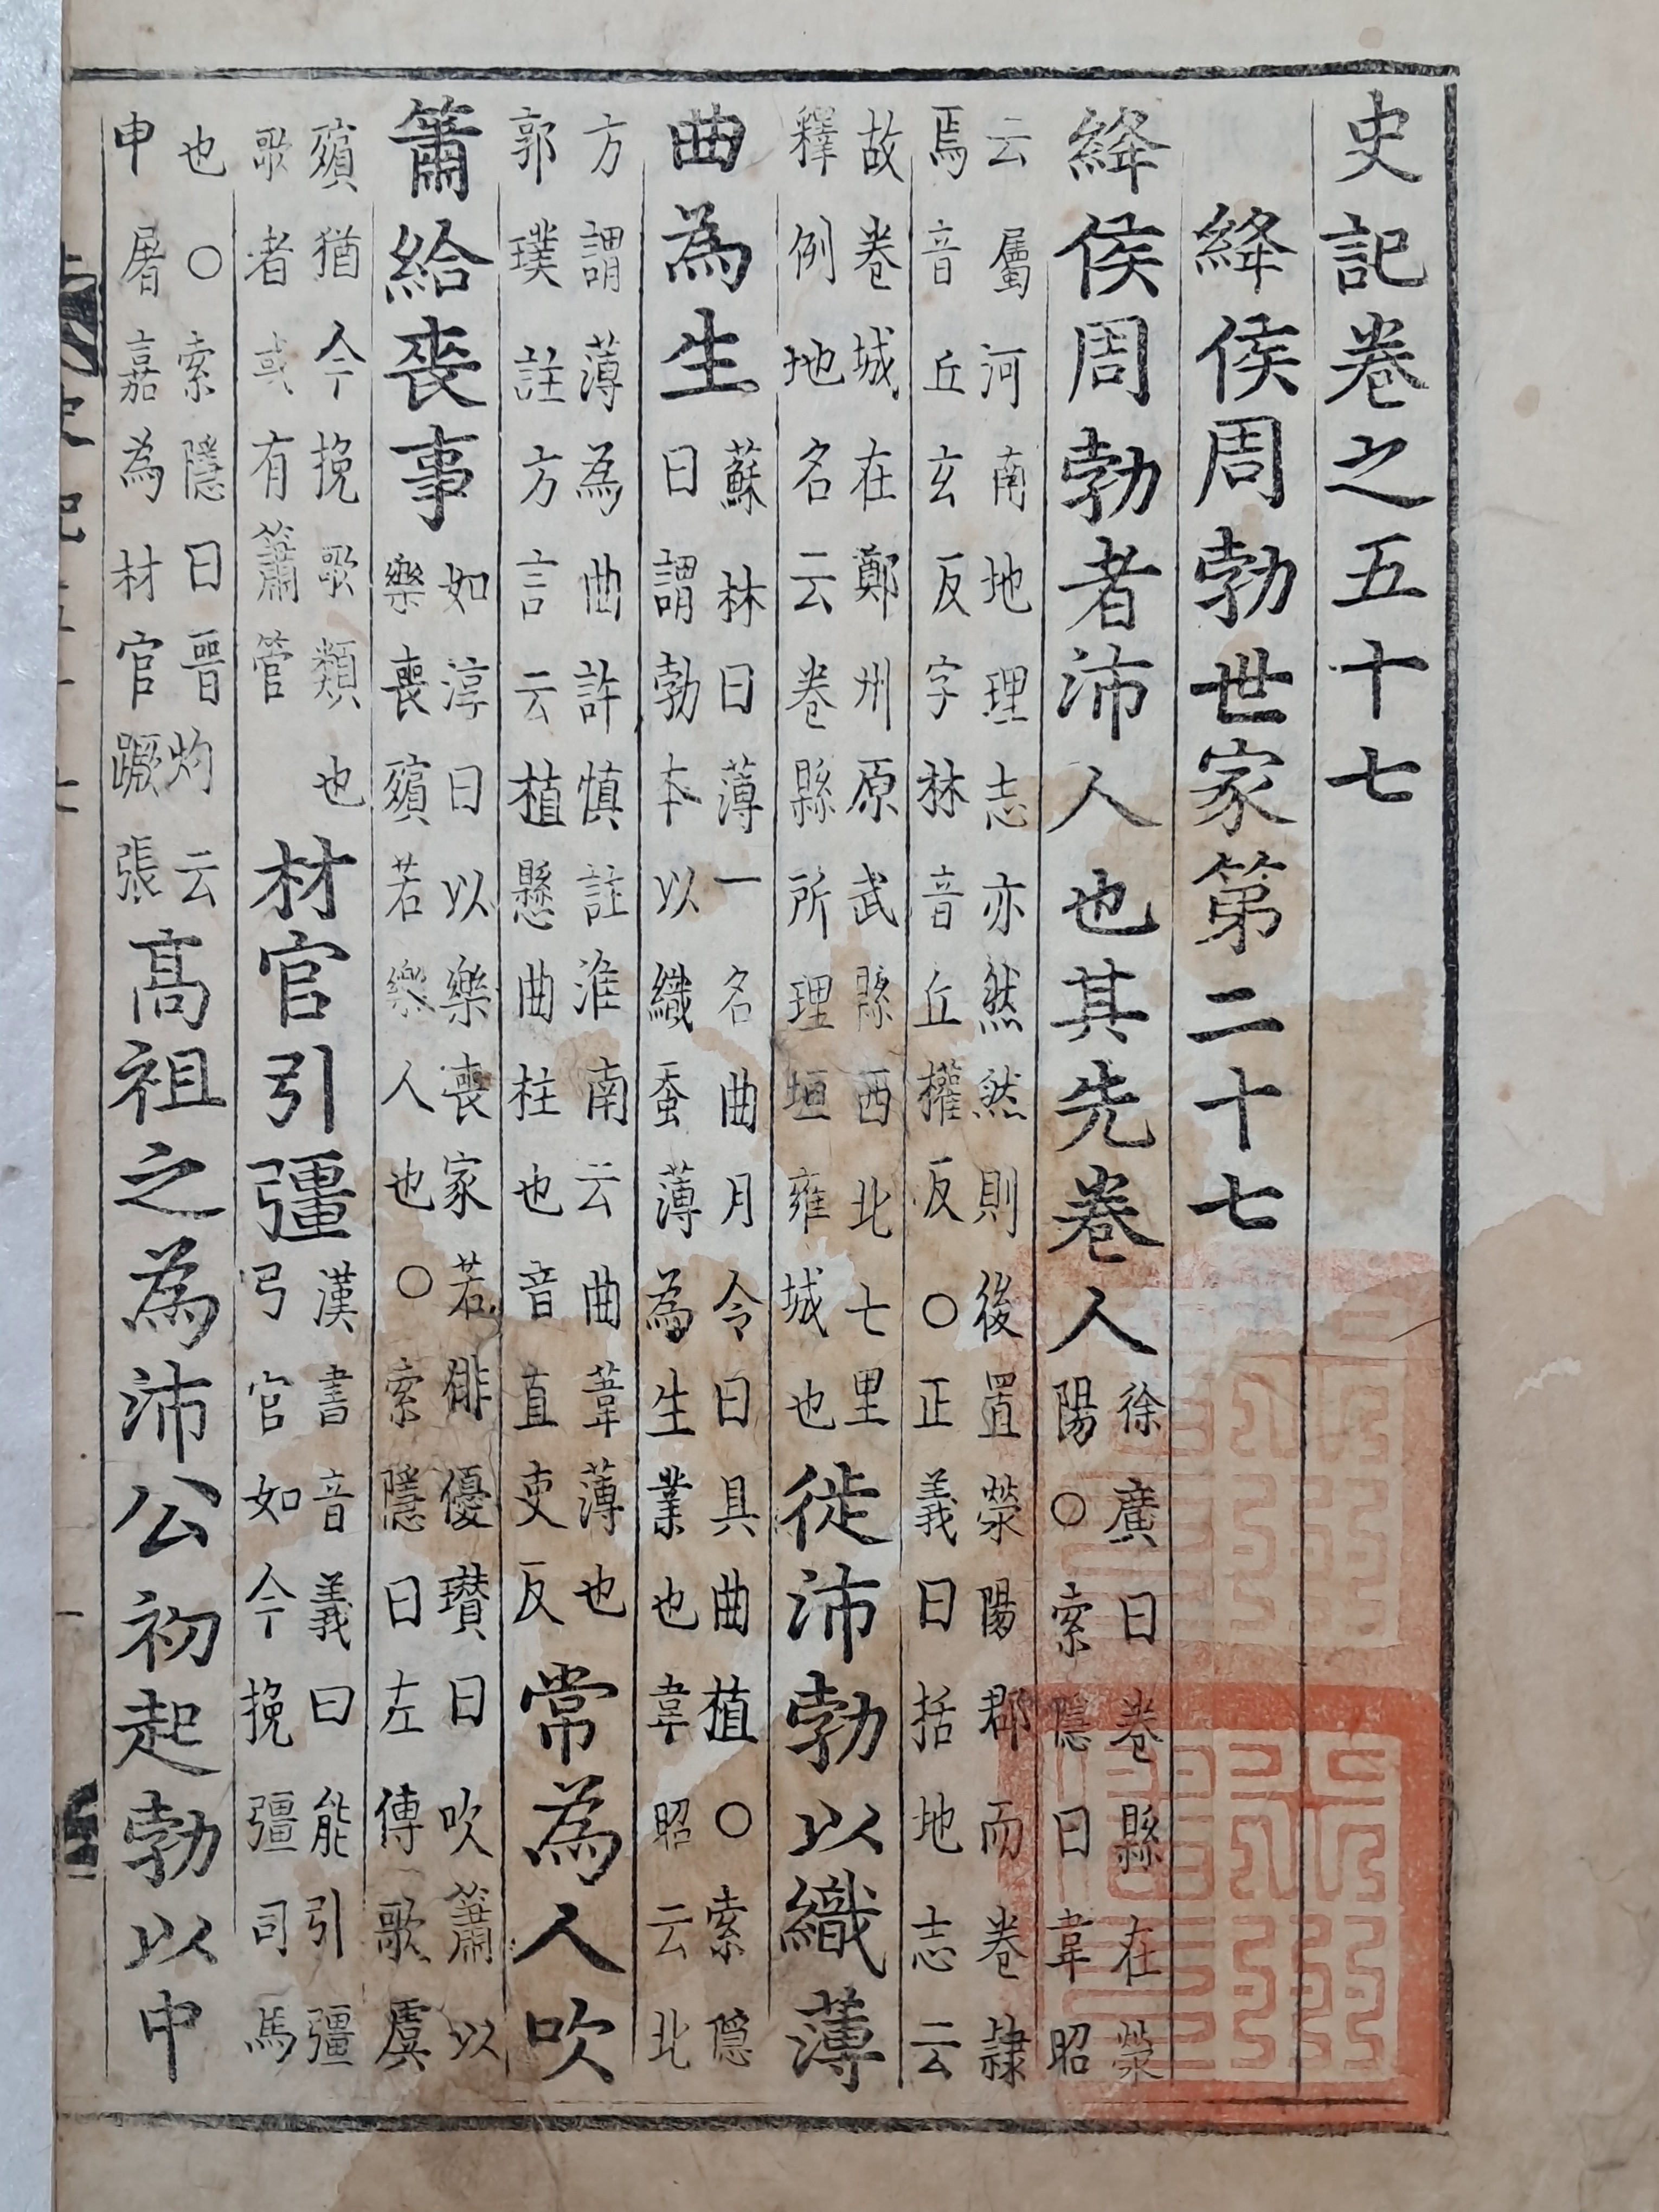 史記卷之五十七
絳侯周勃世家第二十七
絳侯周勃者沛人也其先卷人徐廣曰卷縣在滎
陽○索隱曰韋昭
云屬河南地理志亦然然則後置滎陽郡而卷隷
焉音丘玄反字林音丘權反○正義曰括地志云
故卷城在鄭州原武縣西北七里
釋例地名云卷縣所理垣雍城也徙沛勃以織薄
曲為生蘇林曰薄一名曲月令曰具曲植○索隱
曰謂勃本以織蚕薄為生業也韋昭云北
方謂薄為曲許慎註淮南云曲葦薄也
郭璞註方言云植懸曲柱也音直吏反常為人吹
簫給喪事如淳曰以樂喪家若俳優瓚曰吹簫以
樂喪殯若樂人也○索隱曰左傳歌虞
殯猶今挽歌類也
歌者或有簫管材官引彊漢書音義曰能引彊
弓官如今挽彊司馬
也○索隱曰晋灼云
申屠嘉為材官蹶張高祖之為沛公初起勃以中